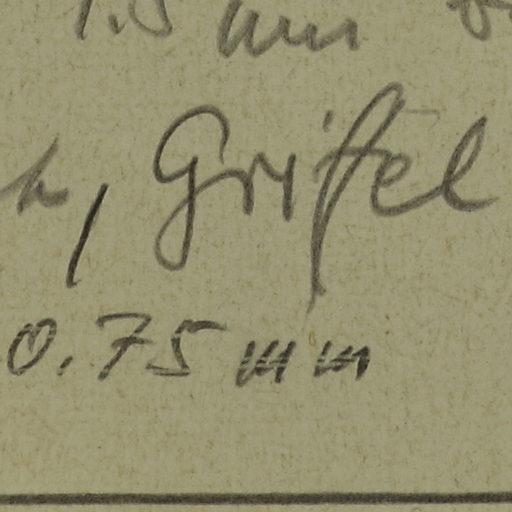 1.5 mm
, Grifel
0.75 mm